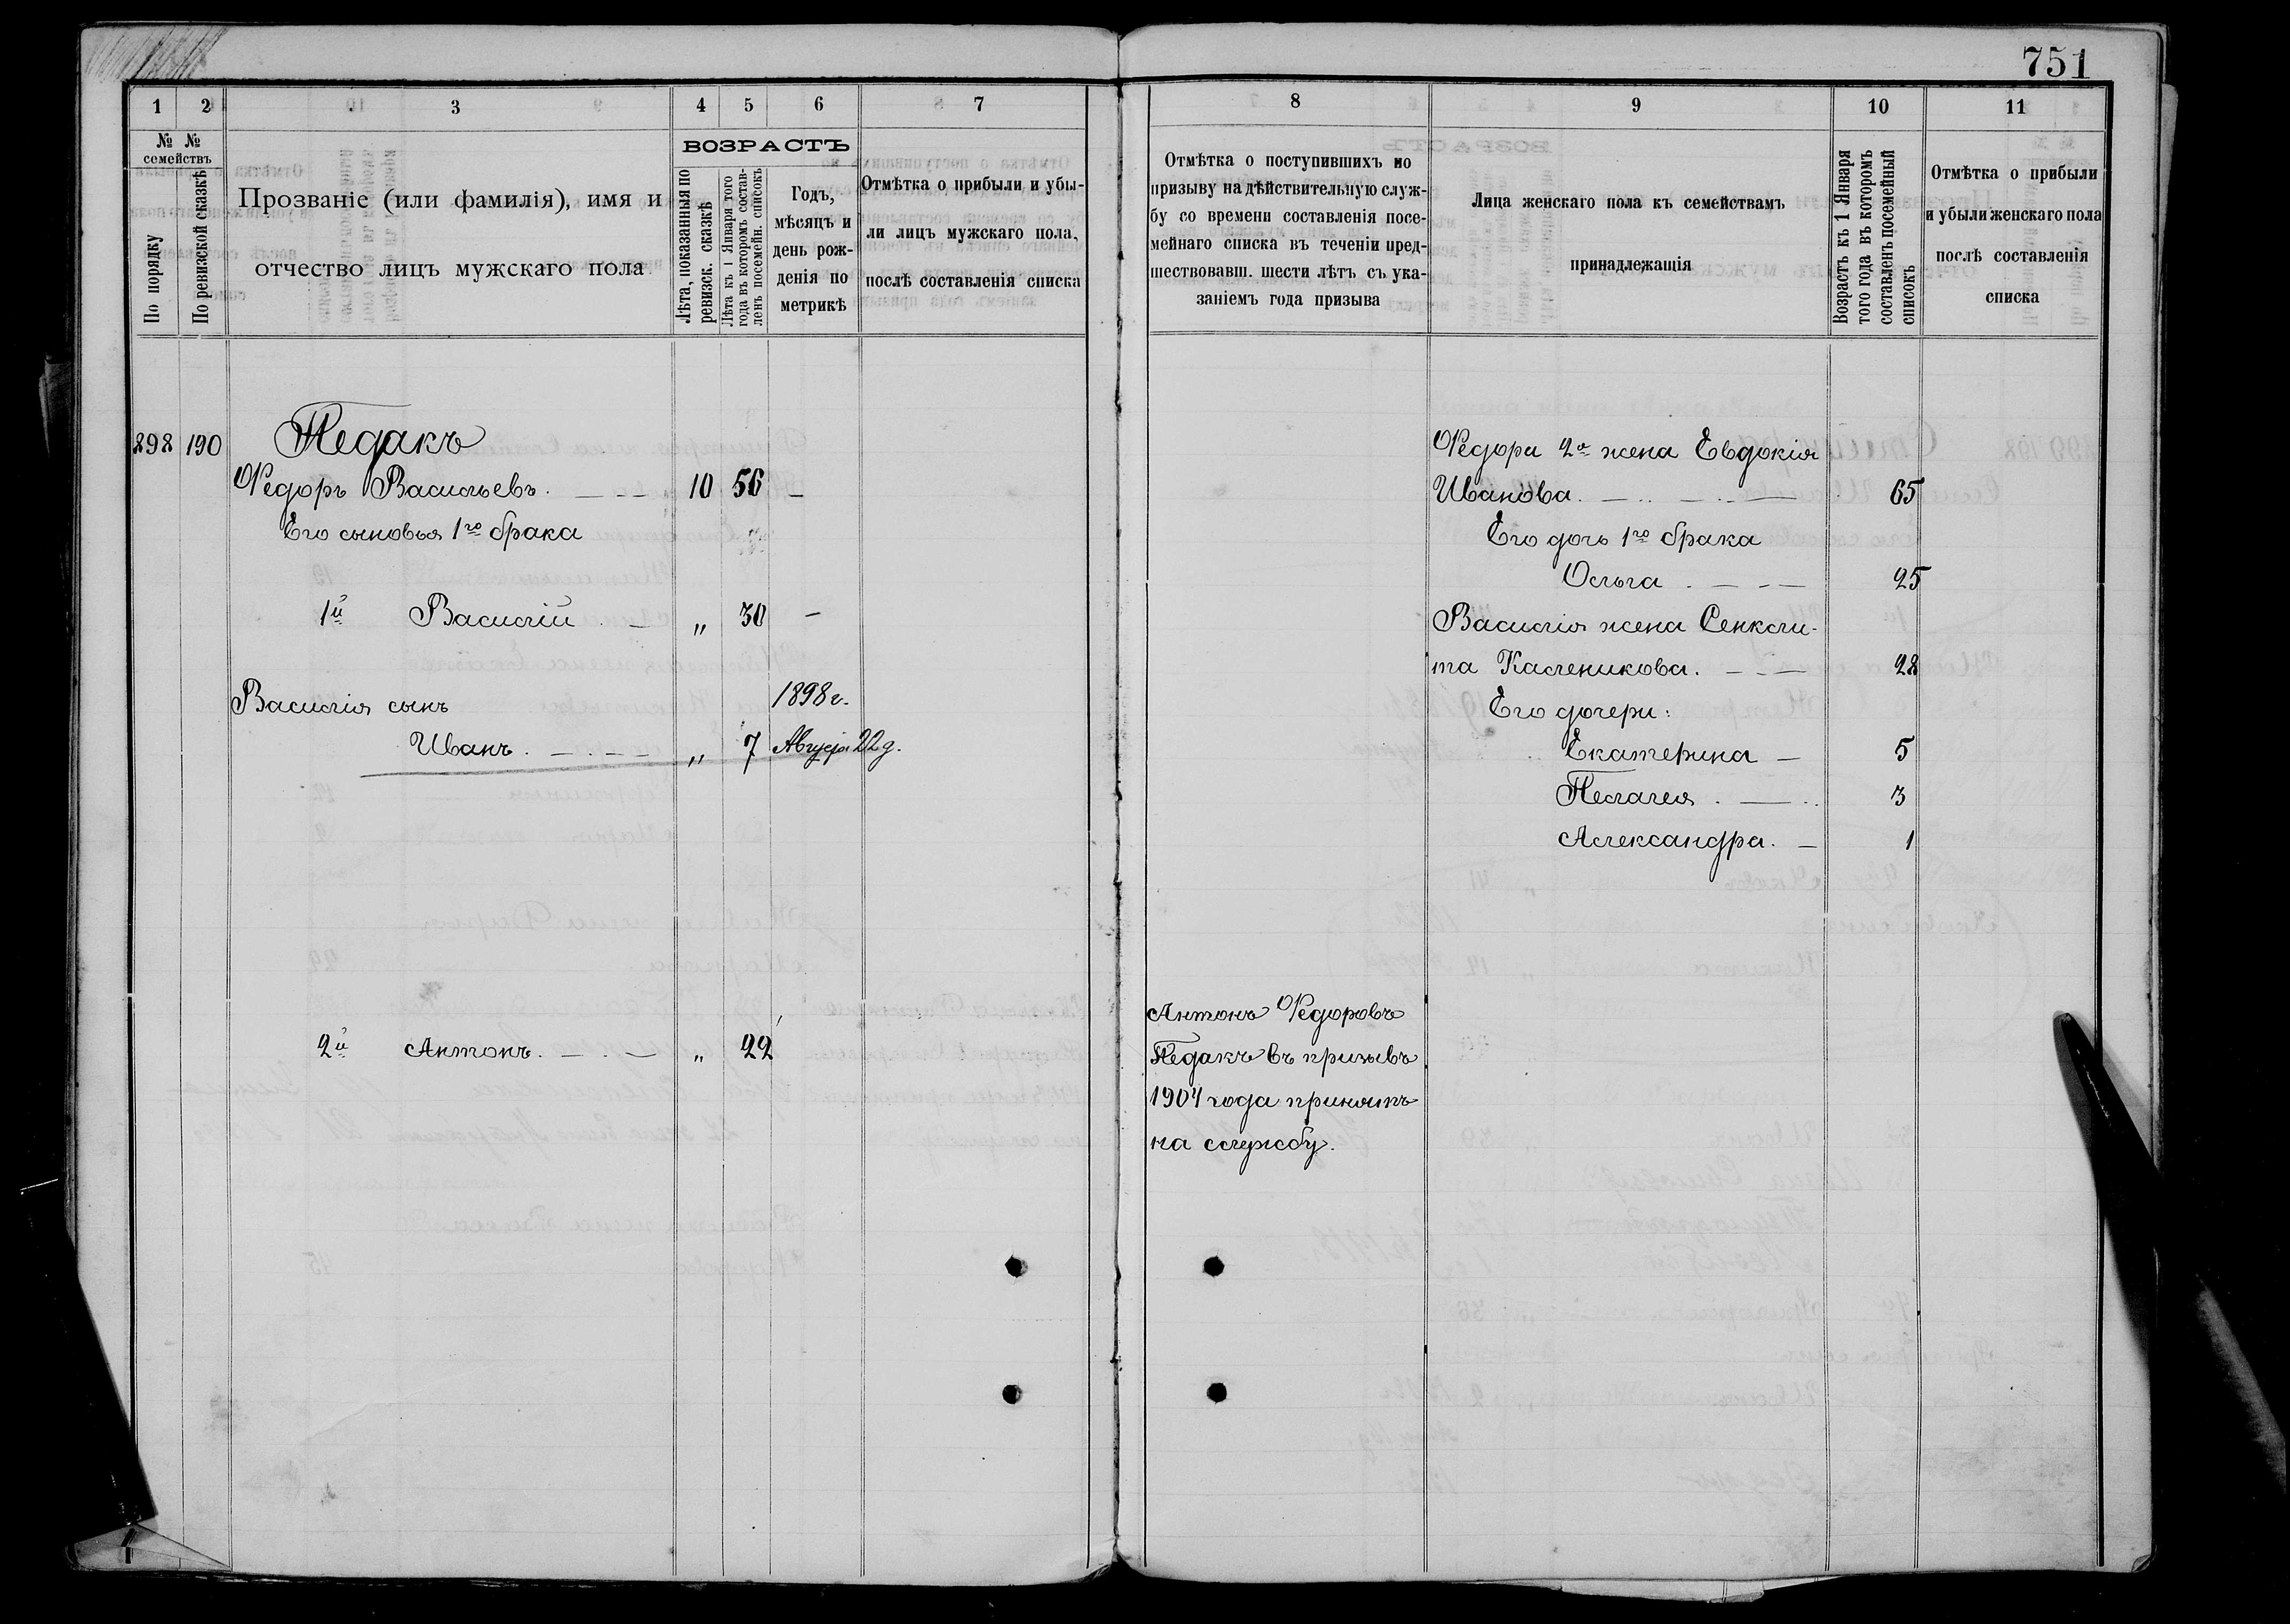 751
1 2 3 4 5 6 7
№ №
семействъ
По порядку
По ревизской сказкѣ
Прозваніе (или фамилія), имя и
отчество лицъ мужскаго пола
ВОЗРАСТЪ
Лѣта, показанныя по
ревизск. сказкѣ
Лѣта къ 1 Января того
года въ которомъ состав-
ленъ посемейн. списокъ
Годъ,
мѣсяцъ и
день рож-
денія по
метрикѣ
Отмѣтка о прибыли и убы-
ли лицъ мужскаго пола,
послѣ составленія списка
898 190 Педакъ
Ѳедоръ Васильевъ. 10 56 —
Его сыновья 1го брака
1й Василій „ 30 —
Василія сынъ 1898 г.
Иванъ. „ 7 Августа 22 д.
2й Антонъ. „ 22
8 9 10 11
Отмѣтка о поступившихъ по
призыву на дѣйствительную служ-
бу со времени составленія посе-
мейнаго списка въ теченіи пред-
шествовавш. шести лѣтъ съ ука-
заніемъ года призыва
Лица женскаго пола къ семействамъ
принадлежащія
Возрастъ къ 1 Января
того года въ которомъ
составленъ посемейный
списокъ
Отмѣтка о прибыли
и убыли женскаго пола
послѣ составленія
списка
Ѳедора 2я жена Евдокія
Иванова. 65
Его дочь 1го брака
Ольга 25
Василія жена Сенкли-
та Каленикова. 28
Его дочери:
Екатерина — 5
Пелагея 3
Александра. — 1
Антонъ Ѳедоровъ
Педакъ въ призывъ
1904 года принятъ
на службу.